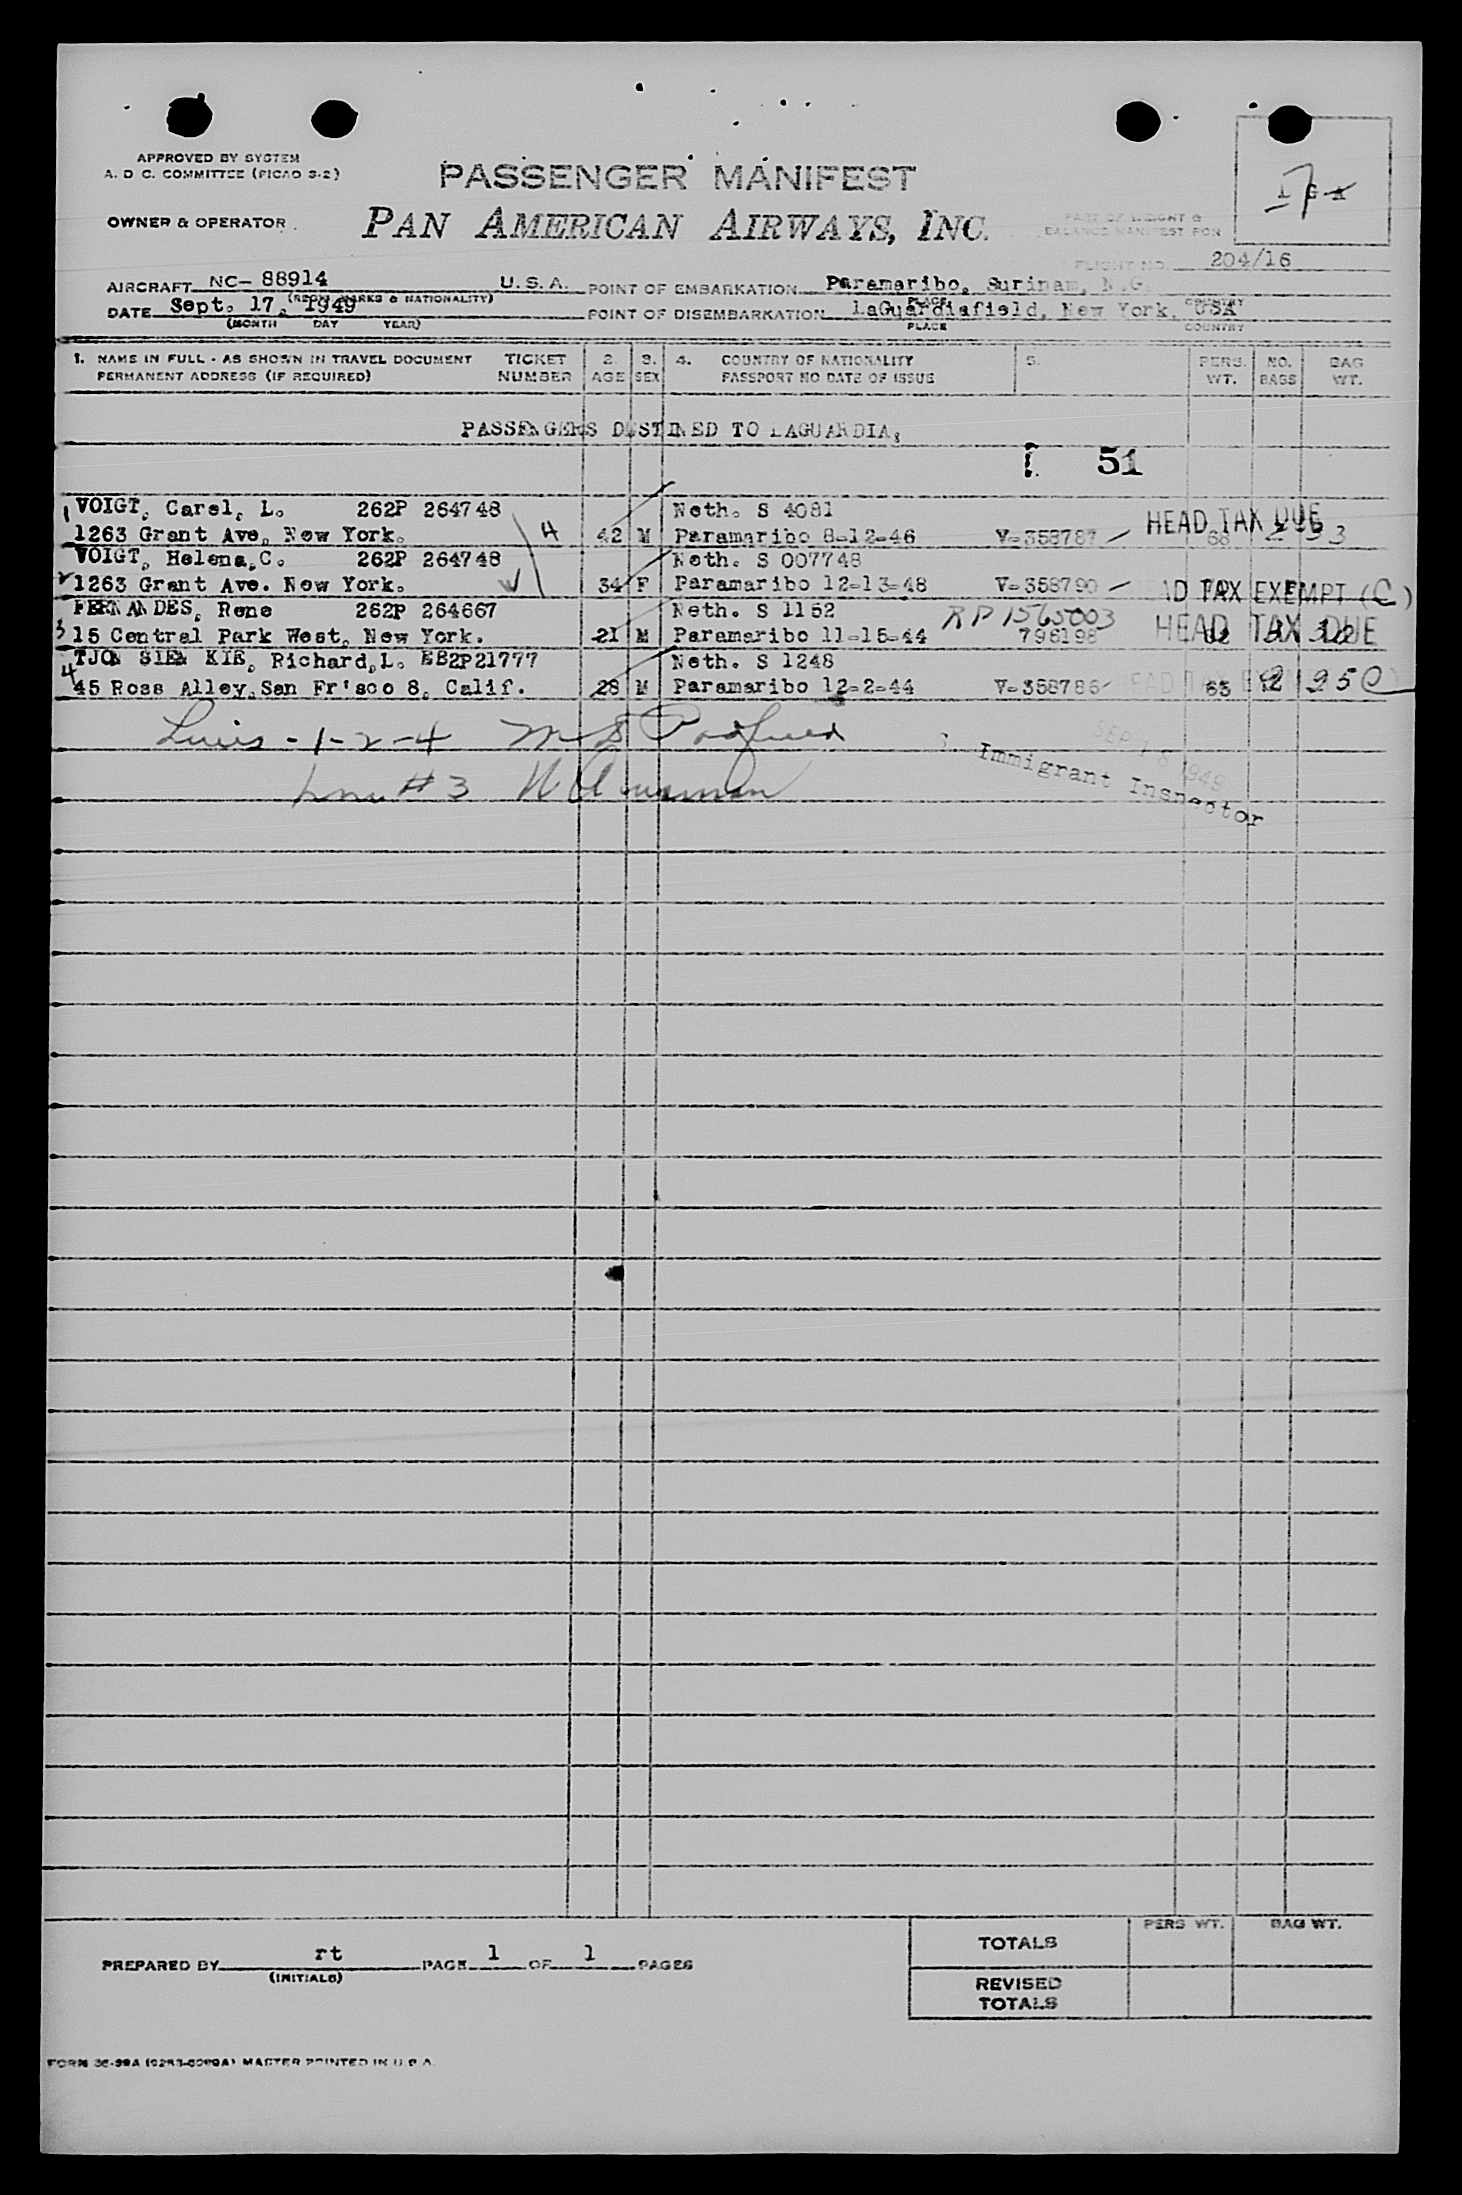 APPROVED BY SYSTEM
A. O C. COMMITTEE (PICAO S-2)
PASSENGER MANIFEST
OWNER & OPERATOR
PAN AMERICAN AIRWAYS, INC.
PART OF WEIGHT &
BALANCE MANIFEST FOR
FLIGHT NO. 204/16
AIRCRAFT NC- 88914 U.S.A. POINT OF EMBARKATION Paramaribo, Surinam, N.G.
(REGN. MARKS & NATIONALITY) PLACE COUNTRY
DATE Sept. 17, 1949 POINT OF DISEMBARKATION LaGuardiafield, New York, USA
(MONTH DAY YEAR) PLACE COUNTRY
1. NAME IN FULL - AS SHOWN IN TRAVEL DOCUMENT TICKET 2. 3. 4. COUNTRY OF NATIONALITY 5. PERS. NO. BAG
PERMANENT ADDRESS (IF REQUIRED) NUMBER AGE SEX PASSPORT NO DATE OF ISSUE WT. BAGS WT.
PASSENGERS DESTINED TO LAGUARDIA,
51
1 VOIGT, Carel, L. 262P 264748 Neth. S 4081
1263 Grant Ave, New York. 4 42 M Paramaribo 8-12-46 V-358787 HEAD TAX DUE
VOIGT, Helena,C. 262P 264748 Neth. S 007748
2 1263 Grant Ave. New York. 34 F Paramaribo 12-13-48 V-358790 AD TAX EXEMPT (C)
FERNANDES, Rene 262P 264667 Neth. S 1152 RP 1565003
3 15 Central Park West, New York. 21 M Paramaribo 11-15-44 798198 HEAD TAX DUE
TJON SIEN KIE, Richard,L. EB2P21777 Neth. S 1248
4 45 Ross Alley,San Fr'sco 8, Calif. 28 M Paramaribo 12-2-44 V-358786 63
Lines - 1-2-4
SEP 18 1949
Immigrant Inspector
Line # 3
PREPARED BY rt PAGE 1 OF 1 PAGES
(INITIALS)
PERS WT. BAG WT.
TOTALS
REVISED
TOTALS
MASTER PRINTED IN U.S.A.